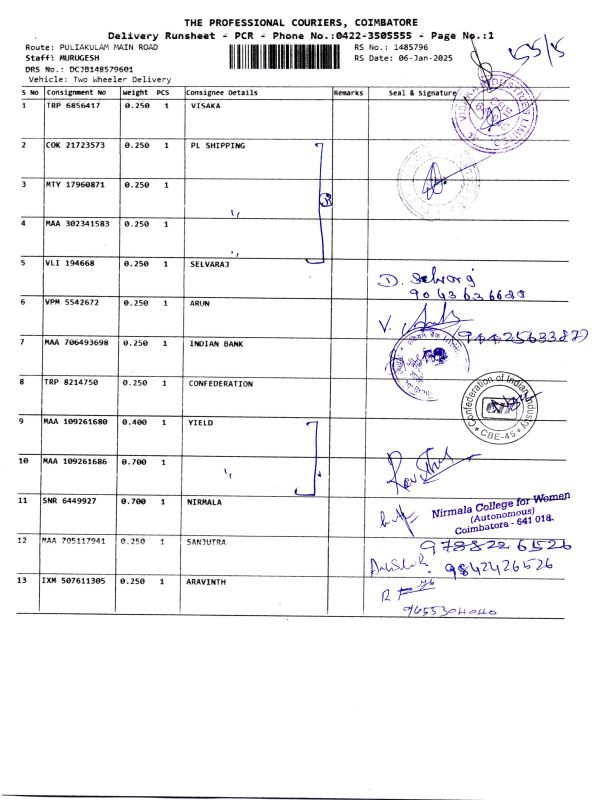 THE PROFESSIONAL COURIERS, COIMBATORE
Delivery Runsheet - PCR - Phone No.:0422-3505555 - Page No.:1
Route: PULIAKULAM MAIN ROAD
Staff: MURUGESH
DRS No.: DCJB148579601
Vehicle: Two Wheeler Delivery
RS No.: 1485796
RS Date: 06-Jan-2025
S No Consignment No Weight PCS Consignee Details Remarks Seal & Signature
1 TRP 6856417 0.250 1 VISAKA
2 COK 21723573 0.250 1 PL SHIPPING
3 MTY 17960871 0.250 1 ''
4 MAA 302341583 0.250 1 ''
5 VLI 194668 0.250 1 SELVARAJ
9043636683
6 VPM 5542672 0.250 1 ARUN
(9442563387)
7 MAA 706493698 0.250 1 INDIAN BANK
8 TRP 8214750 0.250 1 CONFEDERATION
Confederation of Indian Industry
* CBE-45 *
9 MAA 109261680 0.400 1 YIELD
10 MAA 109261686 0.700 1 ''
11 SNR 6449927 0.700 1 NIRMALA
Nirmala College for Women
(Autonomous)
Coimbatore - 641 018.
12 MAA 705117941 0.250 1 SANJUTRA
9788226526
9842426526
13 IXM 507611305 0.250 1 ARAVINTH
9655304040